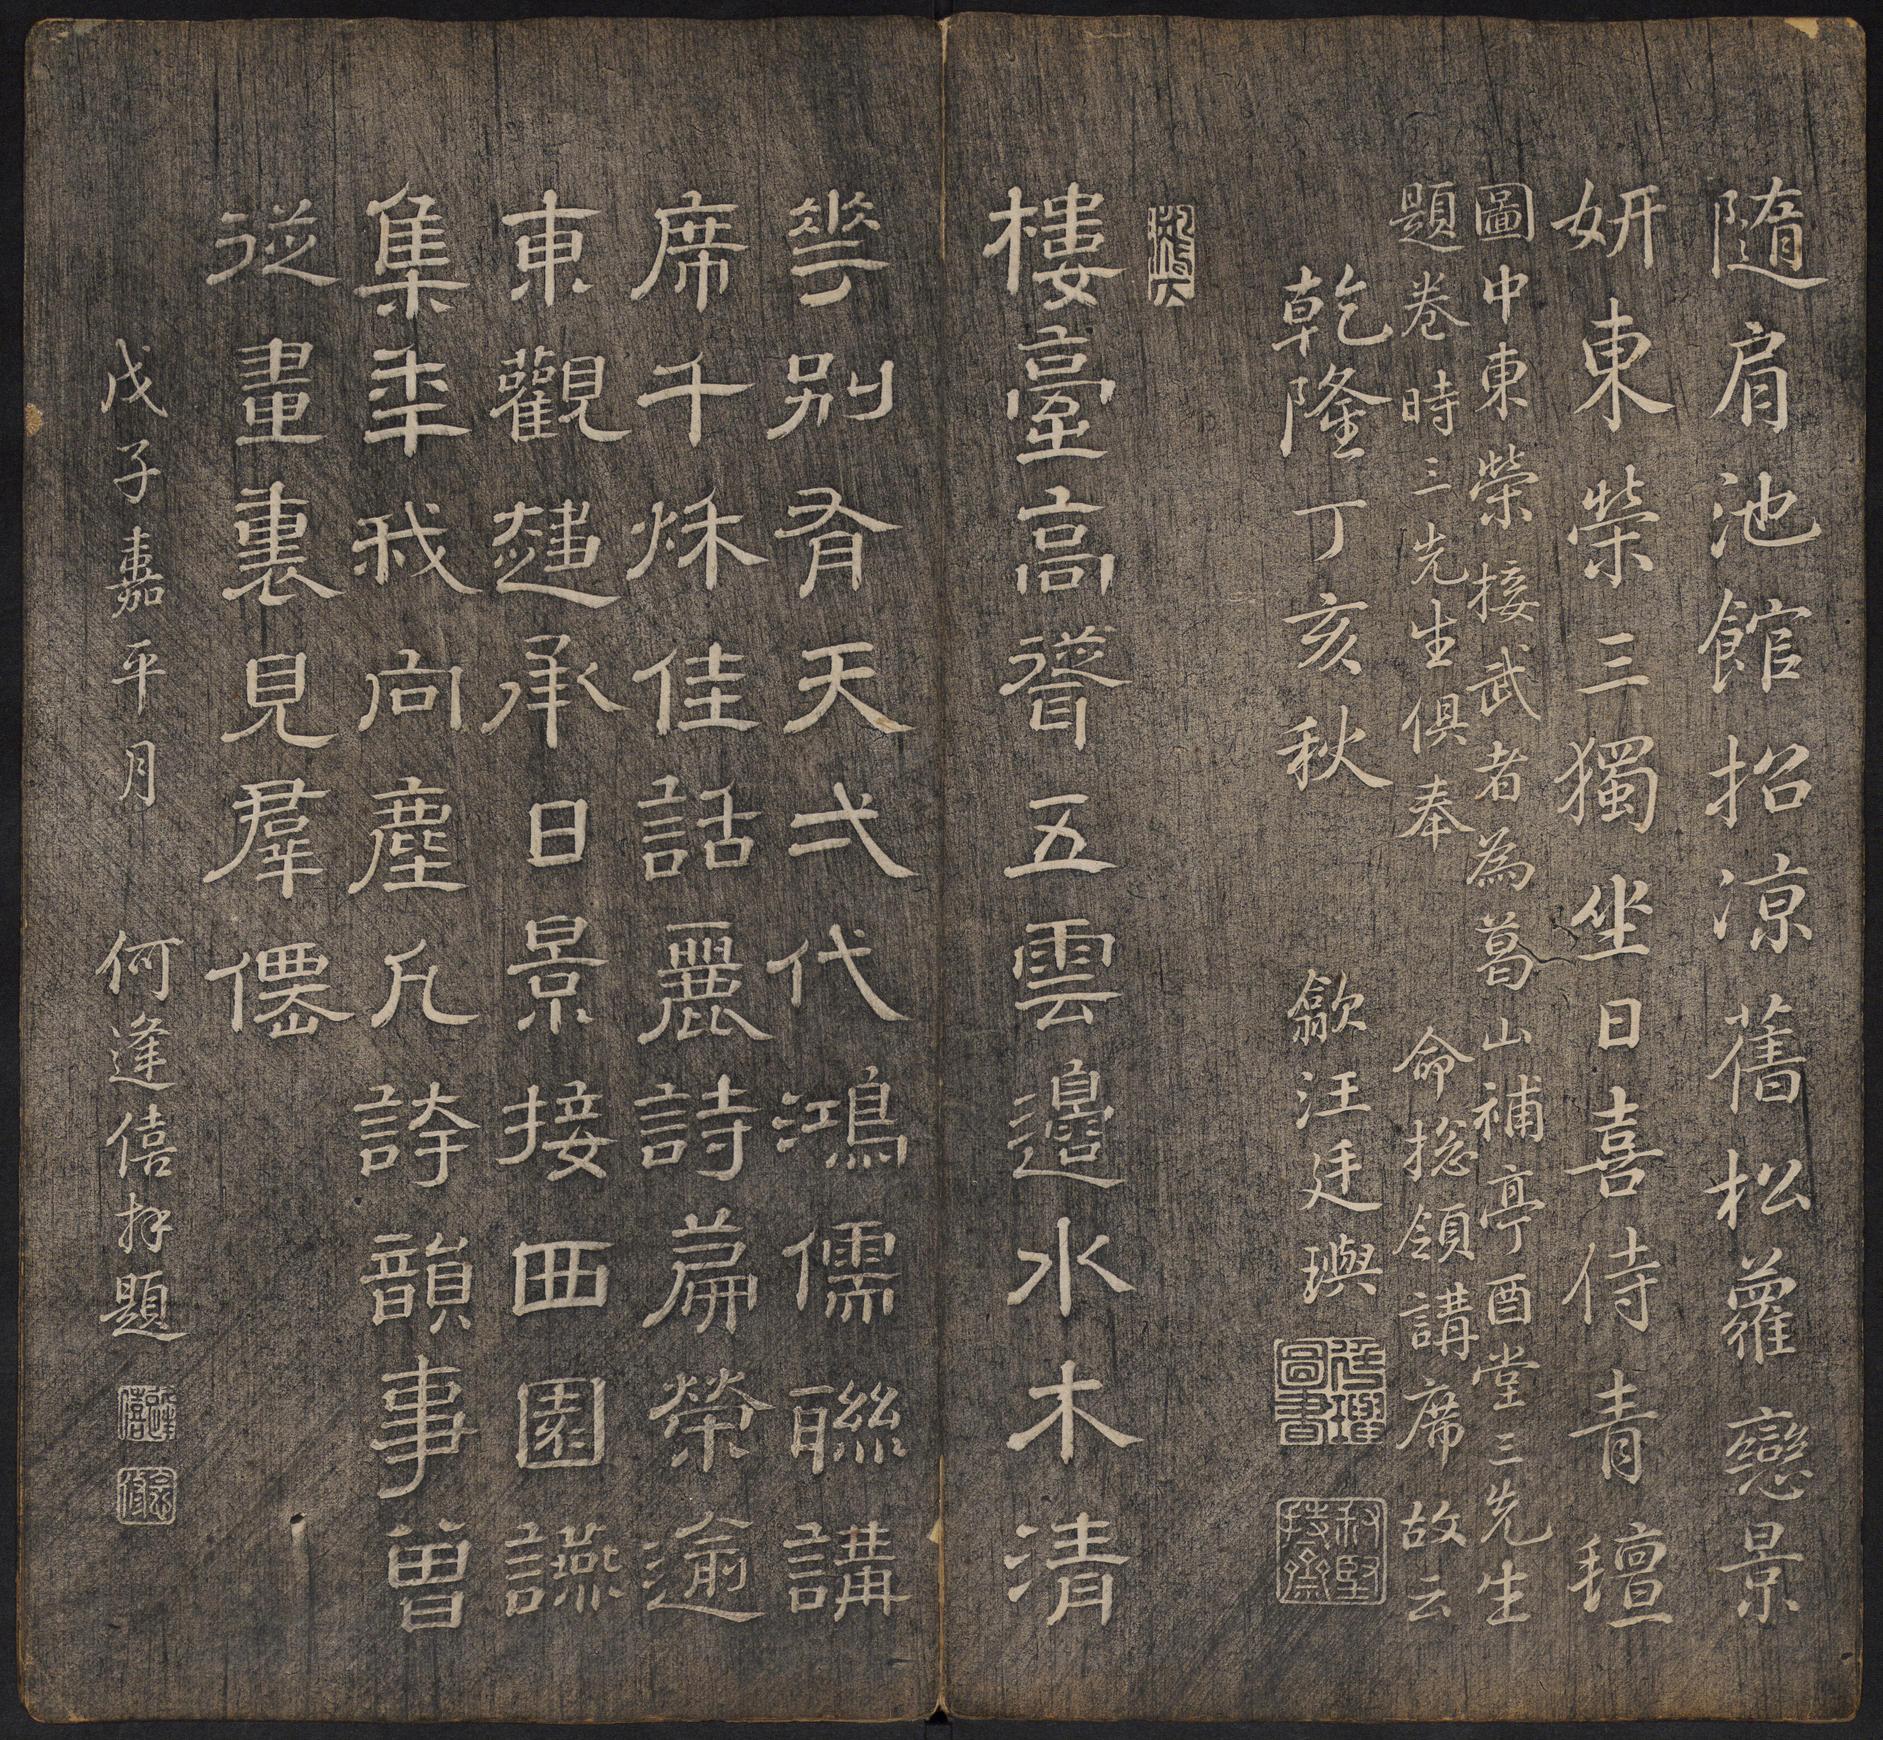 隨肩池館招涼舊松蘿戀景
妍東榮三獨坐日喜侍青氊
圖中東榮接武者為葛山補亭酉堂三先生
題卷時三先生俱奉 命掄領講席故云
乾隆丁亥秋 歙汪廷璵
樓臺高聳五雲邊水木清
華别有天弍代鴻儒聯講
席千秌佳話麗詩萹榮逾
東觀趨承日景接西園讌
集秊我向塵凡誇韻事曾
從畫裏見羣僊
戊子嘉平月 何逢僖拜題